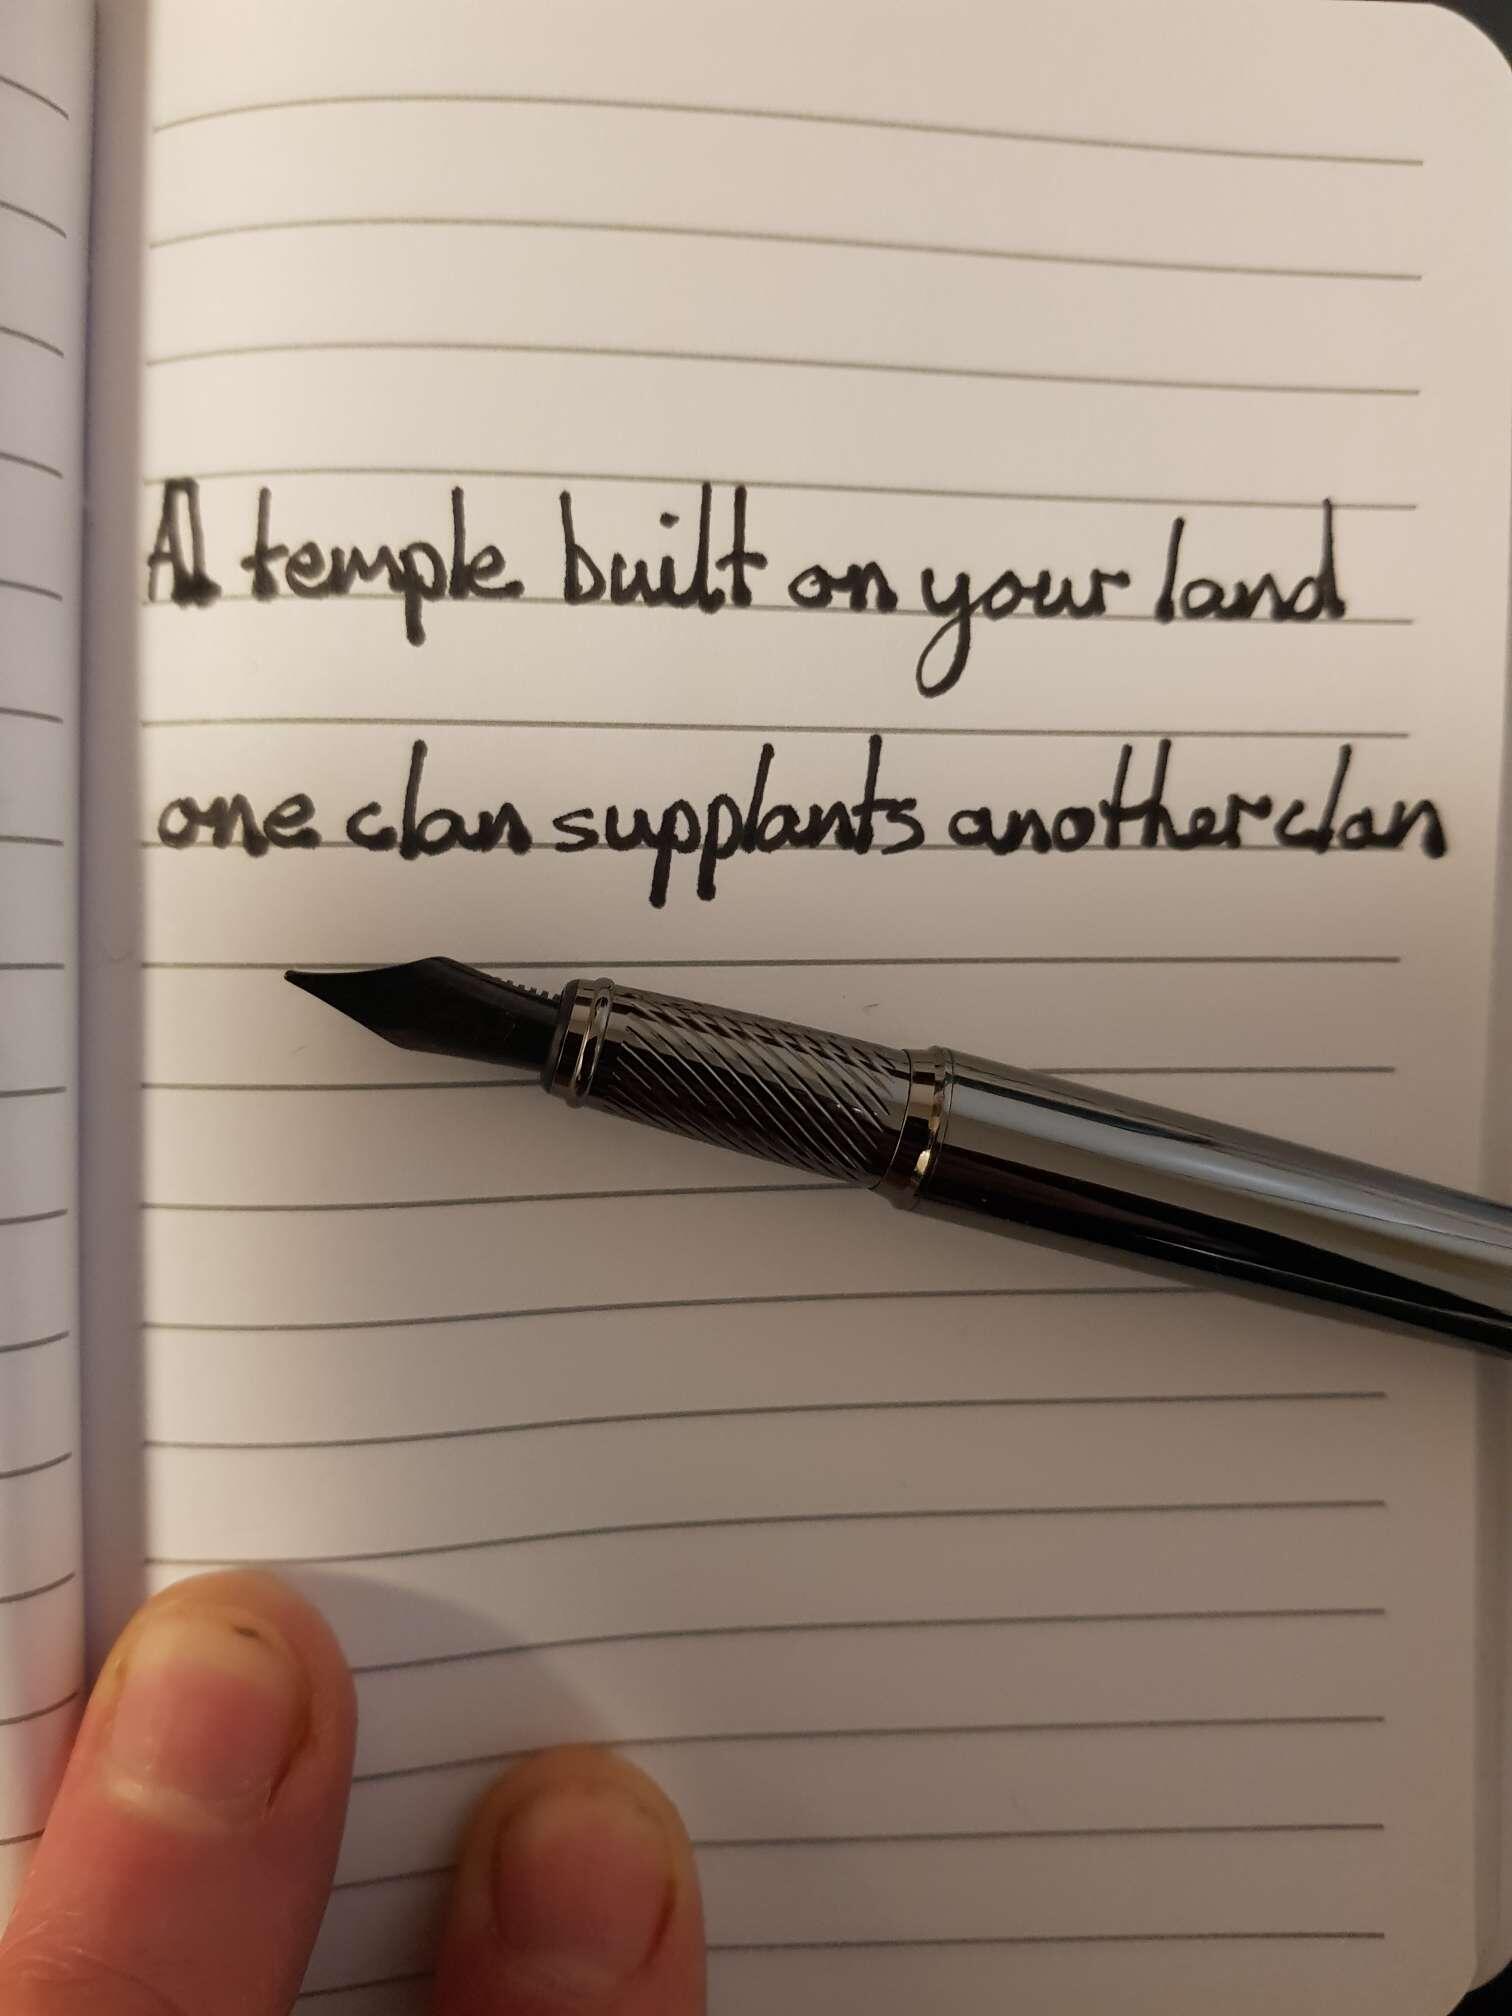 A temple built on your land
one clan supplants another clan